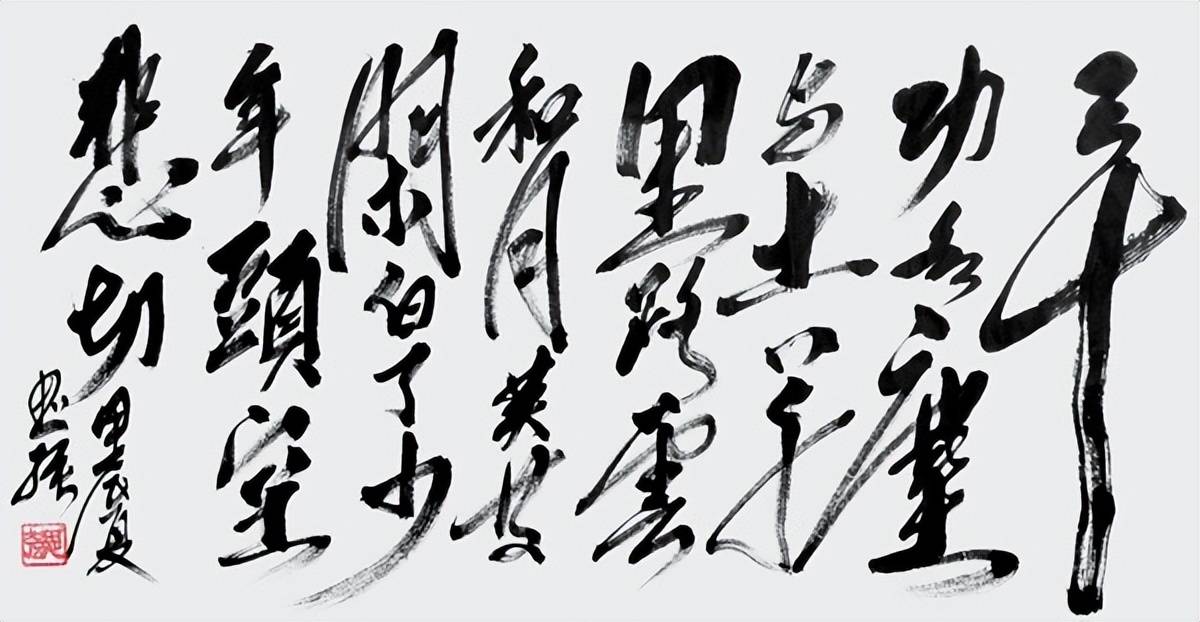 三十
功名塵
与土八千
里路雲
和月莫等
閑白了少
年頭空
悲切
甲辰夏